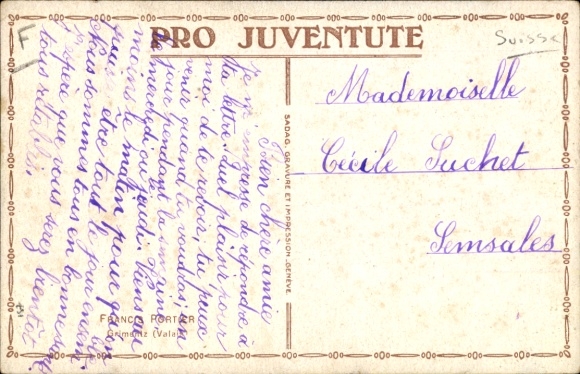 PRO JUVENTUTE
F
Suisse
Mademoiselle
Cécile Suchet
Semsales
SADAG, GRAVURE ET IMPRESSION, GENÈVE
FRANCIS PORTIER
Grimentz (Valais)
Bien chère amie
Je m'empresse de répondre à
ta lettre. Quel plaisir pour
moi de te revoir, tu peux
venir quand tu voudras, un
jour pendant la semaine
le mercredi ou le jeudi.
moins le matin pour qu'on
puisse être tout le jour ensemble
Nous sommes tous en bonne santé
J'espère que vous serez bientôt
tous rétablis.